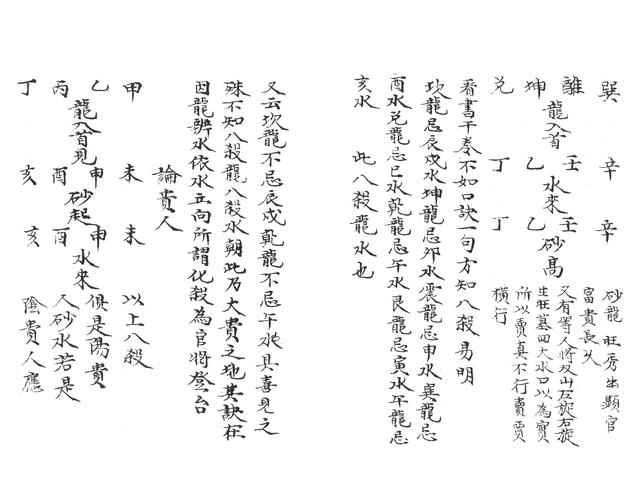 巽 辛 辛 砂龍旺秀出顯官
富貴長久
離 壬 壬 又有等人將双山左旋右旋
龍入首 水來 砂高
坤 乙 乙 生旺墓四大水口以為寶
所以賣真不行賣賈
兌 丁 丁 橫行
看書千卷不如口訣一句方知八殺易明
坎龍忌辰戌水坤龍忌卯水震龍忌申水巽龍忌
酉水兌龍忌巳水乾龍忌午水艮龍忌寅水午龍忌
亥水 此八殺龍水也
又云坎龍不忌辰戌乾龍不忌午水具喜見之
殊不知八殺龍八殺水朝此乃大貴之地其訣在
因龍辨水依水立向所謂化殺為官將登台
論貴人
甲 未 未 以上八殺
乙 申 申 俱是陽貴
龍入首見 砂起 水來
丙 酉 酉 人砂水若是
丁 亥 亥 陰貴人應